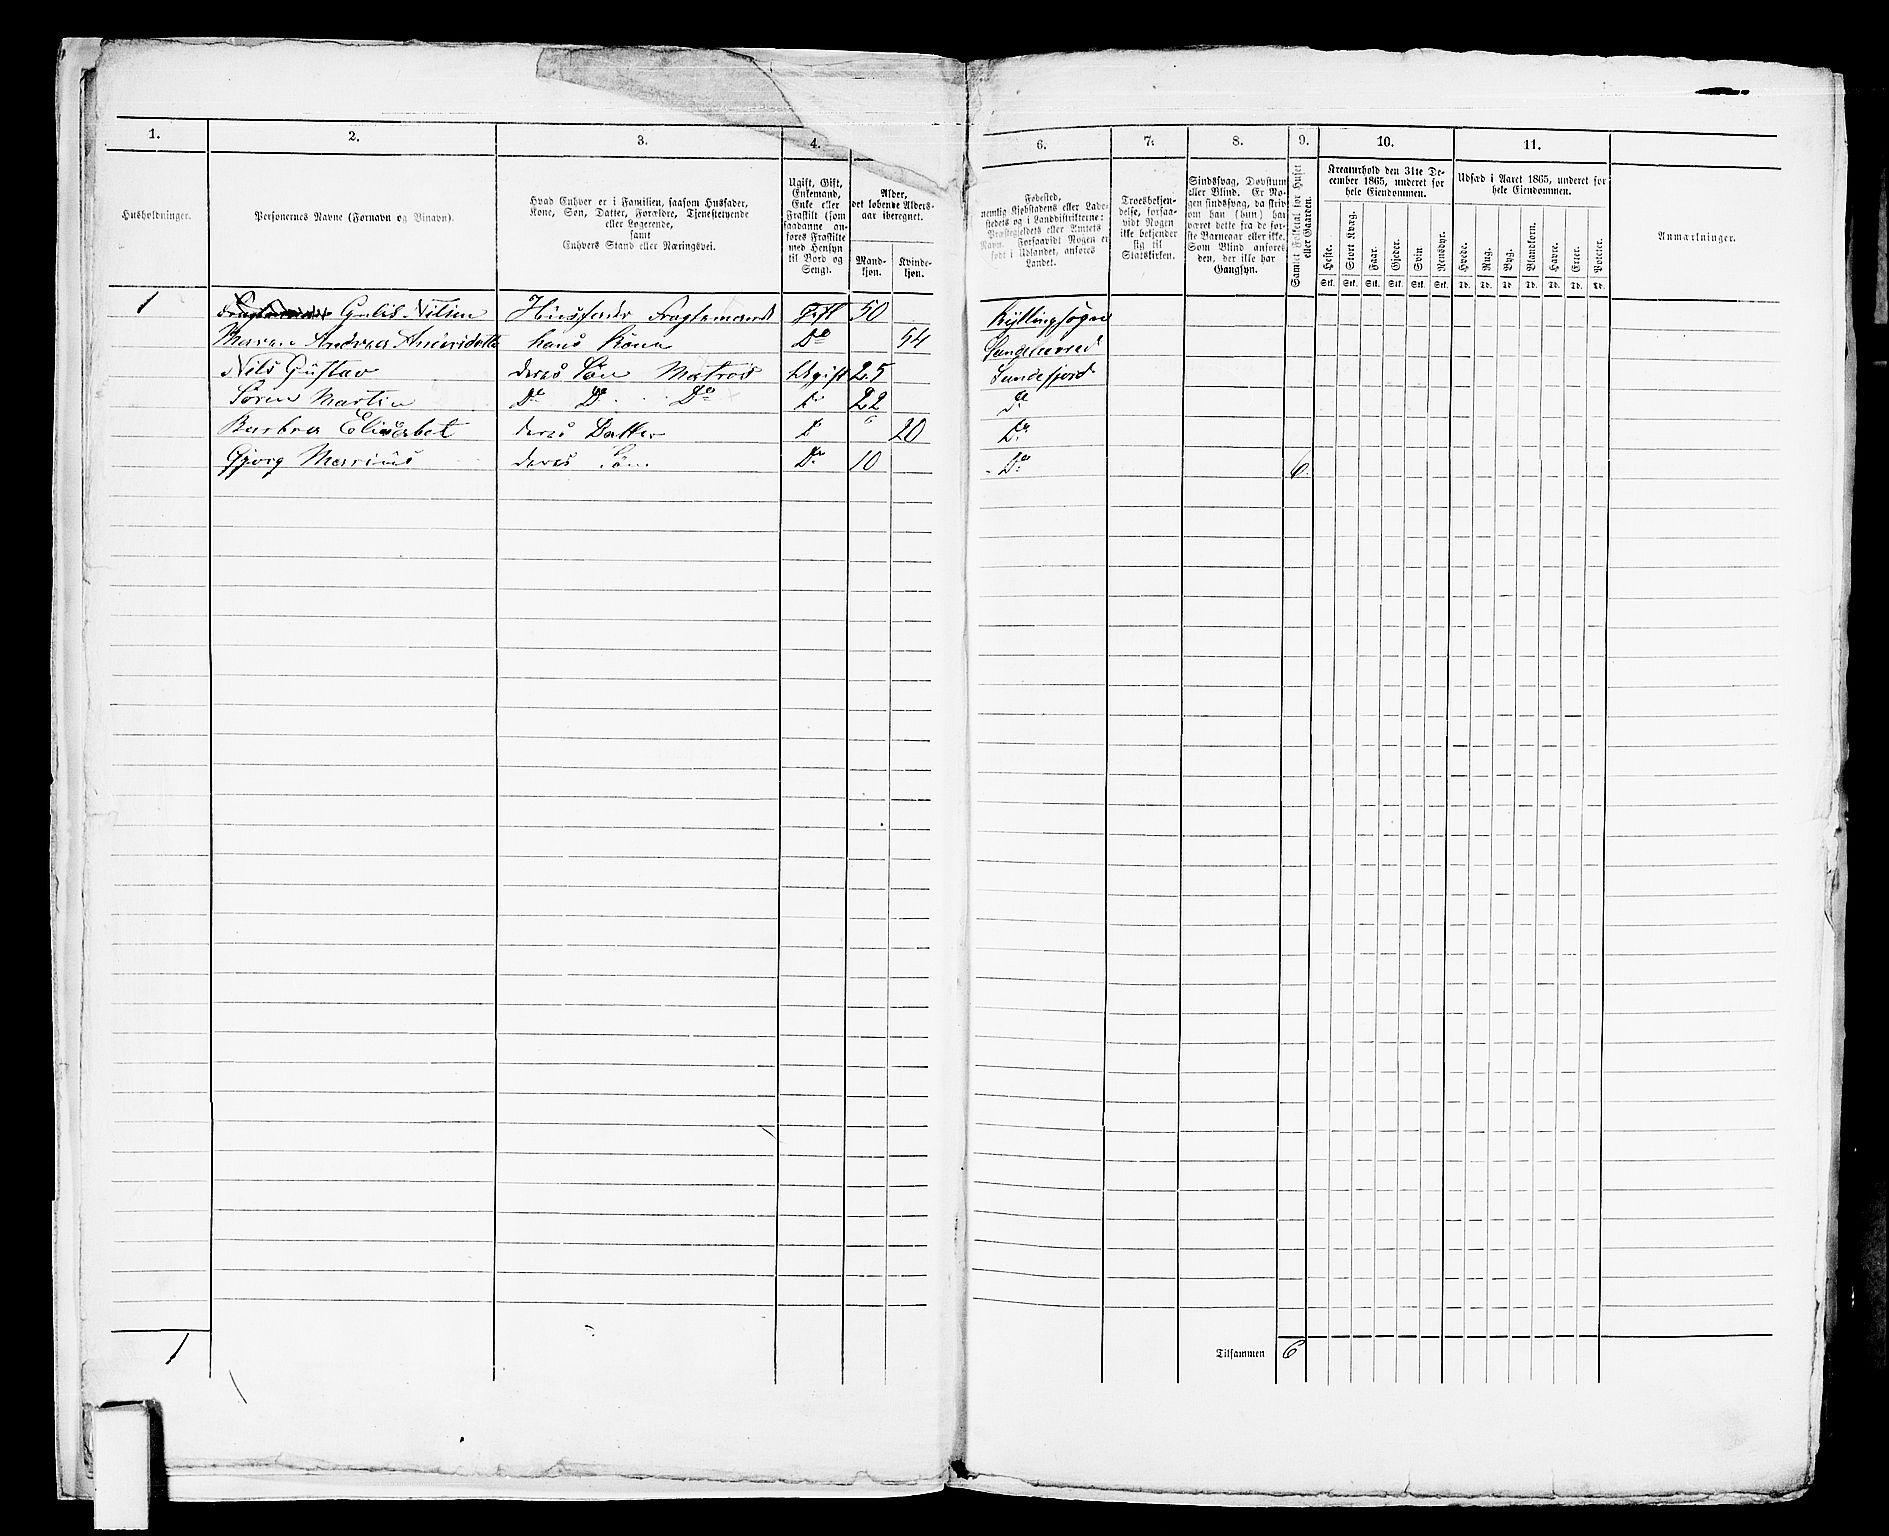 1. 2. 3. 4. 6. 7. 8. 9. 10. 11.
Husholdninger.
Personernes Navne (Fornavn og Tilnavn).
Hvad Enhver er i Familien, saasom Husfader,
Kone, Søn, Datter, Forældre, Tjenestetyende
eller Logerende,
samt
Enhvers Stand eller Næringsvei.
Ugift, Gift,
Enkemand,
Enke eller
Fraskilt (som
saadanne an-
føres Fraskilte
med Hensyn
til Bord og
Seng).
Alder,
det løbende Alders-
aar iberegnet.
Mand-
kjøn.
Kvinde-
kjøn.
Fødested,
nemlig Kjøbstadens eller Lade-
stedets og i Landdistrikterne:
Præstegjeldets eller Amtets
Navn. Forsaavidt Nogen er
født i Udlandet, anføres
Landet.
Troesbekjen-
delse, forsaa-
vidt Nogen
ikke bekjender
sig til
Statskirken.
Sindssvag, Døvstum
eller Blind. Er No-
gen sindssvag, da skriv
om han (hun) har
været dette fra de før-
ste Barneaar eller ikke.
Som Blind anføres
den, der ikke har
Gangsyn.
Samlet Folketal for Huset
eller Gaarden.
Kreaturhold den 31te De-
cember 1865, underet for
hele Eiendommen.
Heste. Stort Kvæg. Faar. Gjeder. Svin. Rensdyr.
Stk. Stk. Stk. Stk. Stk. Stk.
Udsæd i Aaret 1865, underet for
hele Eiendommen.
Hvede. Rug. Byg. Blandkorn. Havre. Erter. Poteter.
Td. Td. Td. Td. Td. Td. Td.
Anmærkninger.
1 Nilsen Husfader Fragtemand Gift 50
Maren Andrea hans Kone Do 54 Sandeherred
Nils Gustav deres Søn Matros Ugift 25 Sandefjord
Søren Martin Do Do Do Do 22 Do
Barbra Elisabet deres Datter Do 20 Do
Gjorg Marrius deres Søn Do 10 Do 6.
1 Tilsammen 6